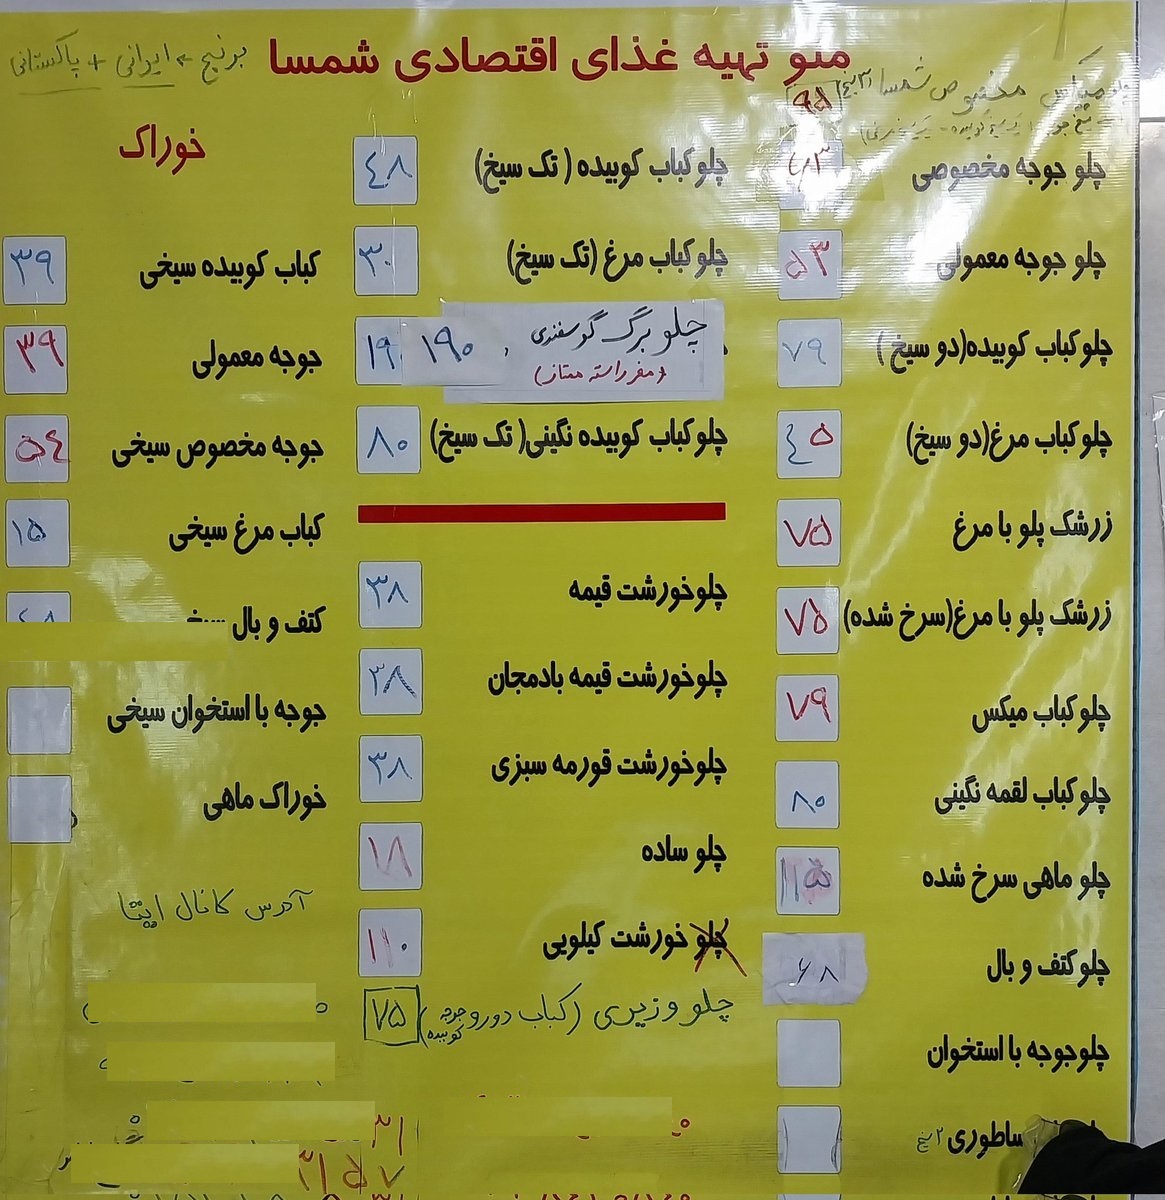 منو تهیه غذای اقتصادی شمسا
برنج ← ایرانی + پاکستانی
مخصوص شمسا
۹۵
چلو جوجه مخصوصی ۶۳
چلو جوجه معمولی ۵۳
چلوکباب کوبیده(دو سیخ) ۷۹
چلوکباب مرغ(دو سیخ) ٤۵
زرشک پلو با مرغ ۷۵
زرشک پلو با مرغ(سرخ شده) ۷۵
چلوکباب میکس ۷۹
چلوکباب لقمه نگینی ۸۰
چلو ماهی سرخ شده
چلوکتف و بال ۶۸
چلوجوجه با استخوان
ساطوری ۲ سیخ
چلوکباب کوبیده ( تک سیخ) ٤۸
چلوکباب مرغ (تک سیخ) ۳۰
چلو برگ گوسفندی ۱۹۰
(مغز راسته ممتاز)
چلوکباب کوبیده نگینی( تک سیخ) ۸۰
چلوخورشت قیمه ۳۸
چلوخورشت قیمه بادمجان ۳۸
چلوخورشت قورمه سبزی ۳۸
چلو ساده ۱۸
چلو خورشت کیلویی ۱۱۰
چلو وزیری (کباب دورو جوجه کوبیده) ۷۵
خوراک
کباب کوبیده سیخی ۳۹
جوجه معمولی ۳۹
جوجه مخصوص سیخی ۵٤
کباب مرغ سیخی ۱۵
کتف و بال
جوجه با استخوان سیخی
خوراک ماهی
آدرس کانال ایتا